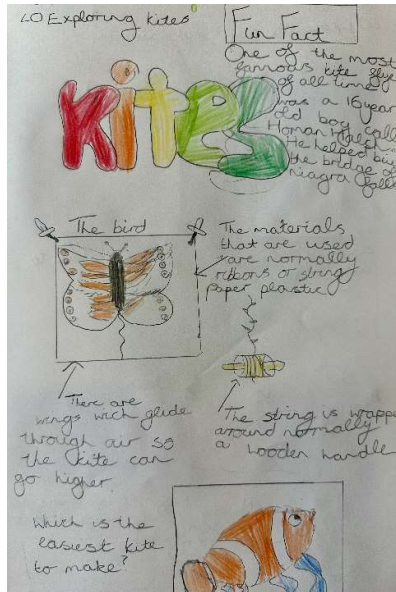 LO Exploring kites
Fun Fact
One of the most
famous kite flye
of all time
was a 16 year
old boy call
Homan Walsh
He helped bui
the bridge of
niagra falls
Kites
The bird
The materials
that are used
are normally
ribbons or string
paper plastic
There are
wings wich glide
through air so
the kite can
go higher.
The string is wrappe
around normally
a wooden handle
Which is the
easiest kite
to make?